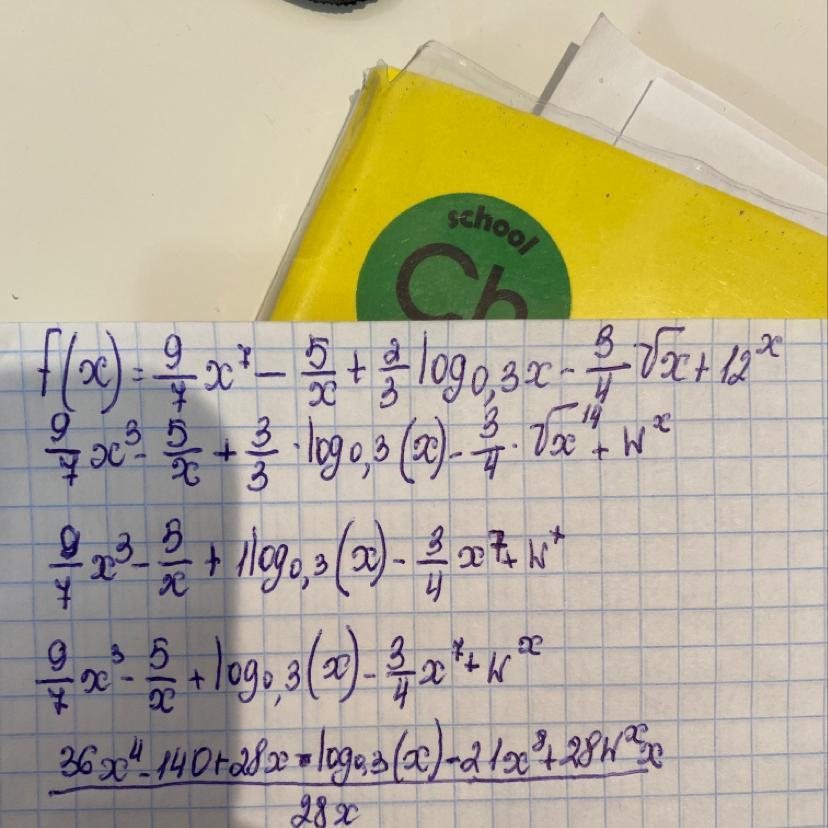 school
Ch
f(x) = 9/7 x⁷ - 5/x + 2/3 log₀,₃x - 3/4 √x + 12ˣ
9/7 x³ - 5/x + 3/3 · log₀,₃(x) - 3/4 · √x¹⁴ + Wˣ
9/7 x³ - 5/x + 1log₀,₃(x) - 3/4 x⁷ + Wˣ
9/7 x³ - 5/x + log₀,₃(x) - 3/4 x⁷ + Wˣ
36x⁴ - 140 + 28x · log₀,₃(x) - 21x⁸ + 28Wˣx
28x